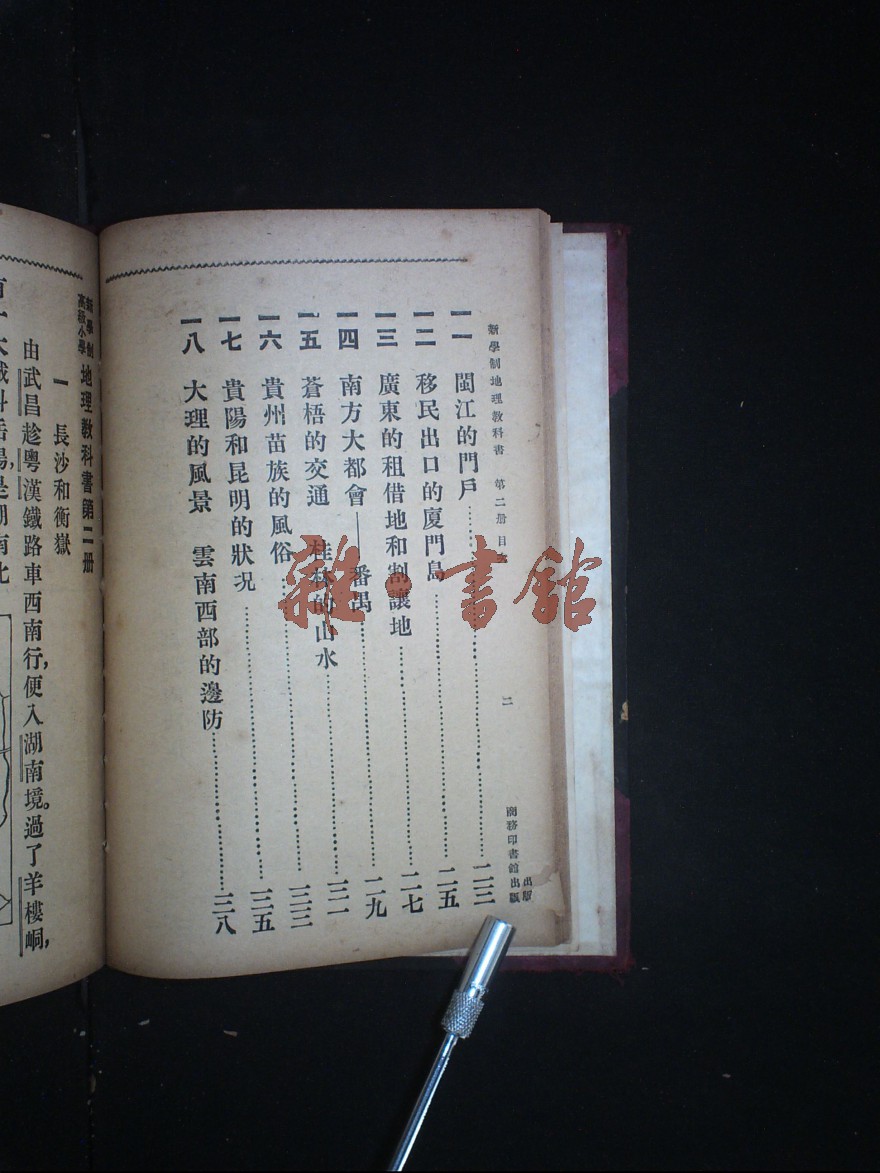 新學制地理教科書 第二册目 二 商務印書館出版
出版
一一 閩江的門戶……二三
一二 移民出口的廈門島……二五
一三 廣東的租借地和割讓地……二七
一四 南方大都會——番禺……二九
一五 蒼梧的交通 桂林的山水……三一
一六 貴州苗族的風俗……三三
一七 貴陽和昆明的狀况……三五
一八 大理的風景 雲南西部的邊防……三八
新學制
高級小學 地理教科書第二册
一 長沙和衡嶽
由武昌趁粵漢鐵路車西南行,便入湖南境。過了羊樓峒,
是湖南北
雜·書館